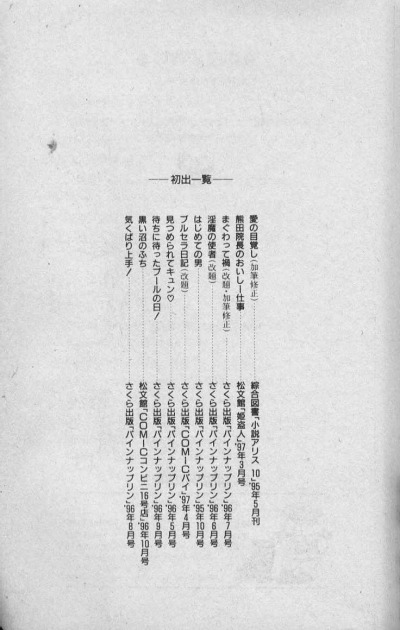 ── 初出一覧 ──
愛の目覚し(加筆修正)……………綜合図書「小説アリス 10」'95年5月刊
熊田院長のおいしー仕事……………松文館「姫盗人」'97年3月号
まぐわって禍(改題・加筆修正)……………さくら出版「パインナップリン」'96年7月号
淫魔の使者(改題)……………さくら出版「パインナップリン」'96年6月号
はじめての男……………さくら出版「パインナップリン」'95年10月号
ブルセラ日記(改題)……………さくら出版「COMICパイ」'97年4月号
見つめられてキュン♡……………さくら出版「パインナップリン」'96年5月号
待ちに待ったプールの日!……………さくら出版「パインナップリン」'96年9月号
黒い沼のふち……………松文館「COMICコンビニ16号店」'96年10月号
気くばり上手!……………さくら出版「パインナップリン」'96年8月号